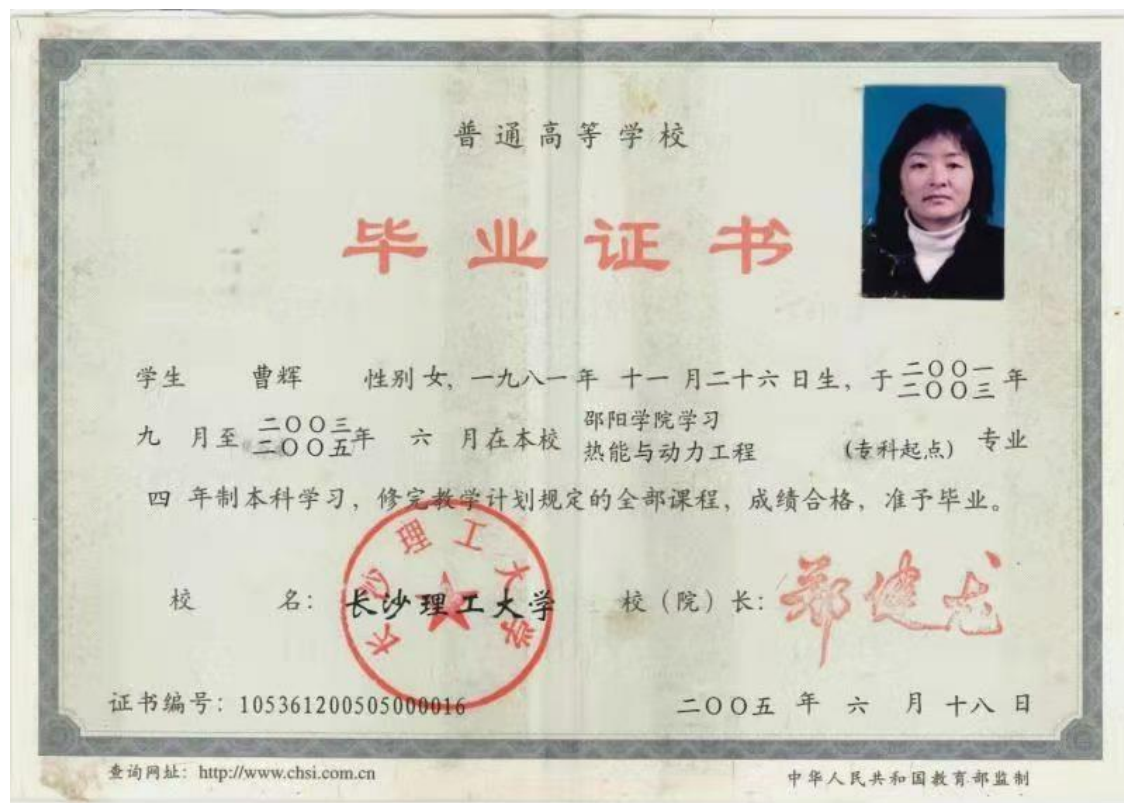 普通高等学校
毕业证书
学生 曹辉 性别 女, 一九八一 年 十一 月 二十六 日生, 于 二〇〇一 年
二〇〇三
九 月至 二〇〇三 年 六 月在本校 邵阳学院学习 专业
二〇〇五 热能与动力工程 (专科起点)
四 年制本科学习, 修完教学计划规定的全部课程, 成绩合格, 准予毕业。
校 名: 长沙理工大学 校(院)长: 郑健龙
长沙理工大学
证书编号: 105361200505000016 二〇〇五 年 六 月 十八 日
查询网址: http://www.chsi.com.cn 中华人民共和国教育部监制